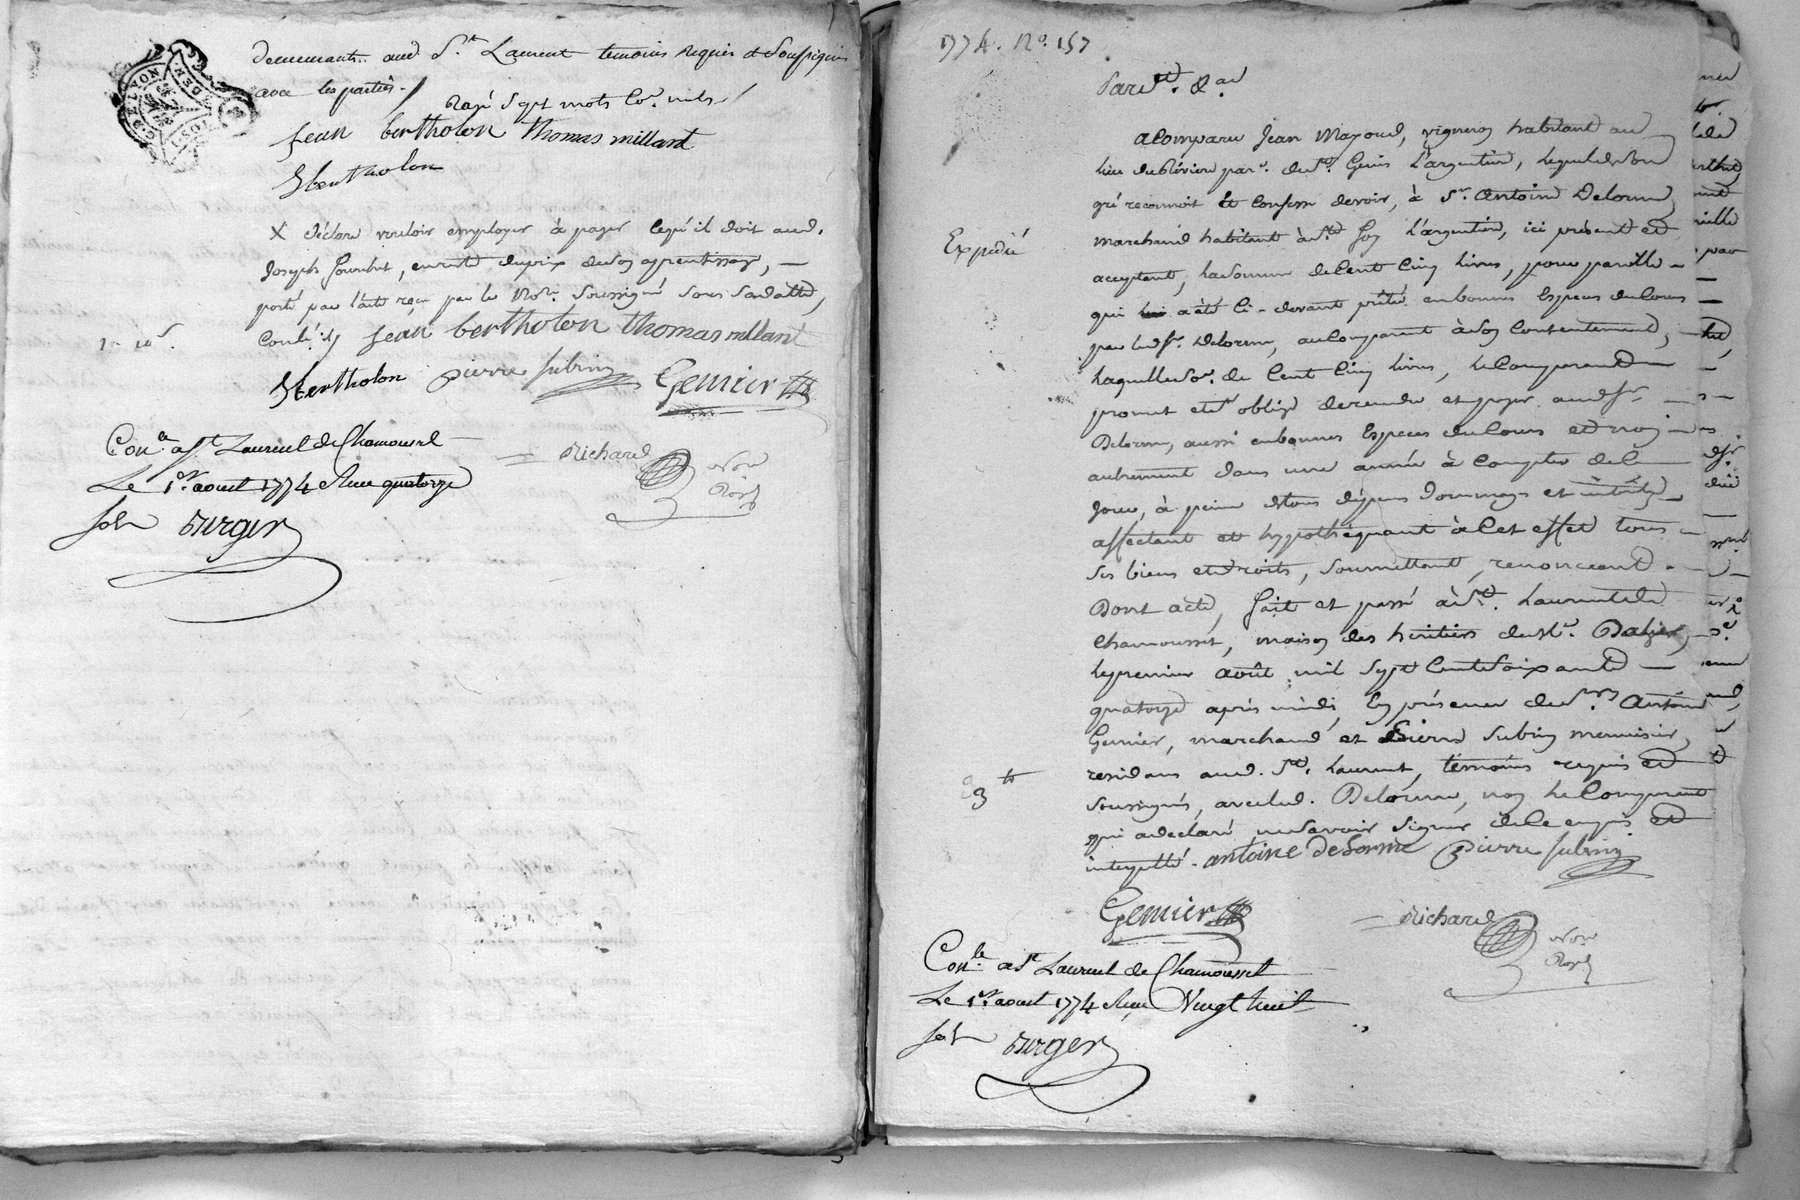 GEN. DE LYON
demeurants aud St Laurent temoins requis et soussignés
avec les parties.
Rayé sept mots
jean bertholon thomas millard
Bertholon
X déclare vouloir employer à payer ce qu'il doit aud.
Joseph en reste du prix de son aprentissage, —
porté par l'acte reçu par le Nore. soussigné sous sa datte,
jean bertholon thomas millard
Bertholon pierre subrin Gemier
Conle. a St Laurent de Chamousset —
Richard Nore Royl
Le 1er. aoust 1774 Reçu quatorze
sols Burger
1774. No. 157
Pardt. &a
a Comparu Jean Mazoud, vigneron habitant au
lieu du parse. de St. Genis L'argentiere, lequel de son
gré reconnoit et confesse devoir, à Sr. Antoine Delorme
Expedié
marchand habitant à Ste Foy L'argentiere, ici présent et
acceptant, la somme de Cent Cinq livres, pour pareille —
qui lui a été ci-devant prêté en bonnes Espèces du Cours
par led. Sr. Delorme, au Comparant à son Consentement,
laquelle so͞e. de Cent Cinq livres, le Comparant
promet et s'oblige de rendre et payer aud. Sr —
Delorme, aussi en bonnes Especes du Cours et non —
autrement dans une année à Compter de ce —
jour, à peine de tous dépens dommages et intérêts —
affectant et hypothéquant à Cet effet tous —
ses biens et droits, soumettant, renonceant —
Dont acte, fait et passé à St. Laurent de
Chamousset, maison des héritiers de Mr.
le premier août mil sept Cent soixante —
quatorze après midi, En présence de Srs Antoine
Gemier, marchand et Pierre Subrin menuisier,
residans aud. St. Laurent, témoins requis et
3 tt
soussignés, avec led. Delorme, non le Comparant
qui a declaré ne savoir signer de ce enquis et
interpellé. antoine delorme pierre subrin
Gemier Richard Nore Royl
Conle. a St Laurent de Chamousset
Le 1er. aoust 1774 Reçu Vingt huit
sols Burger